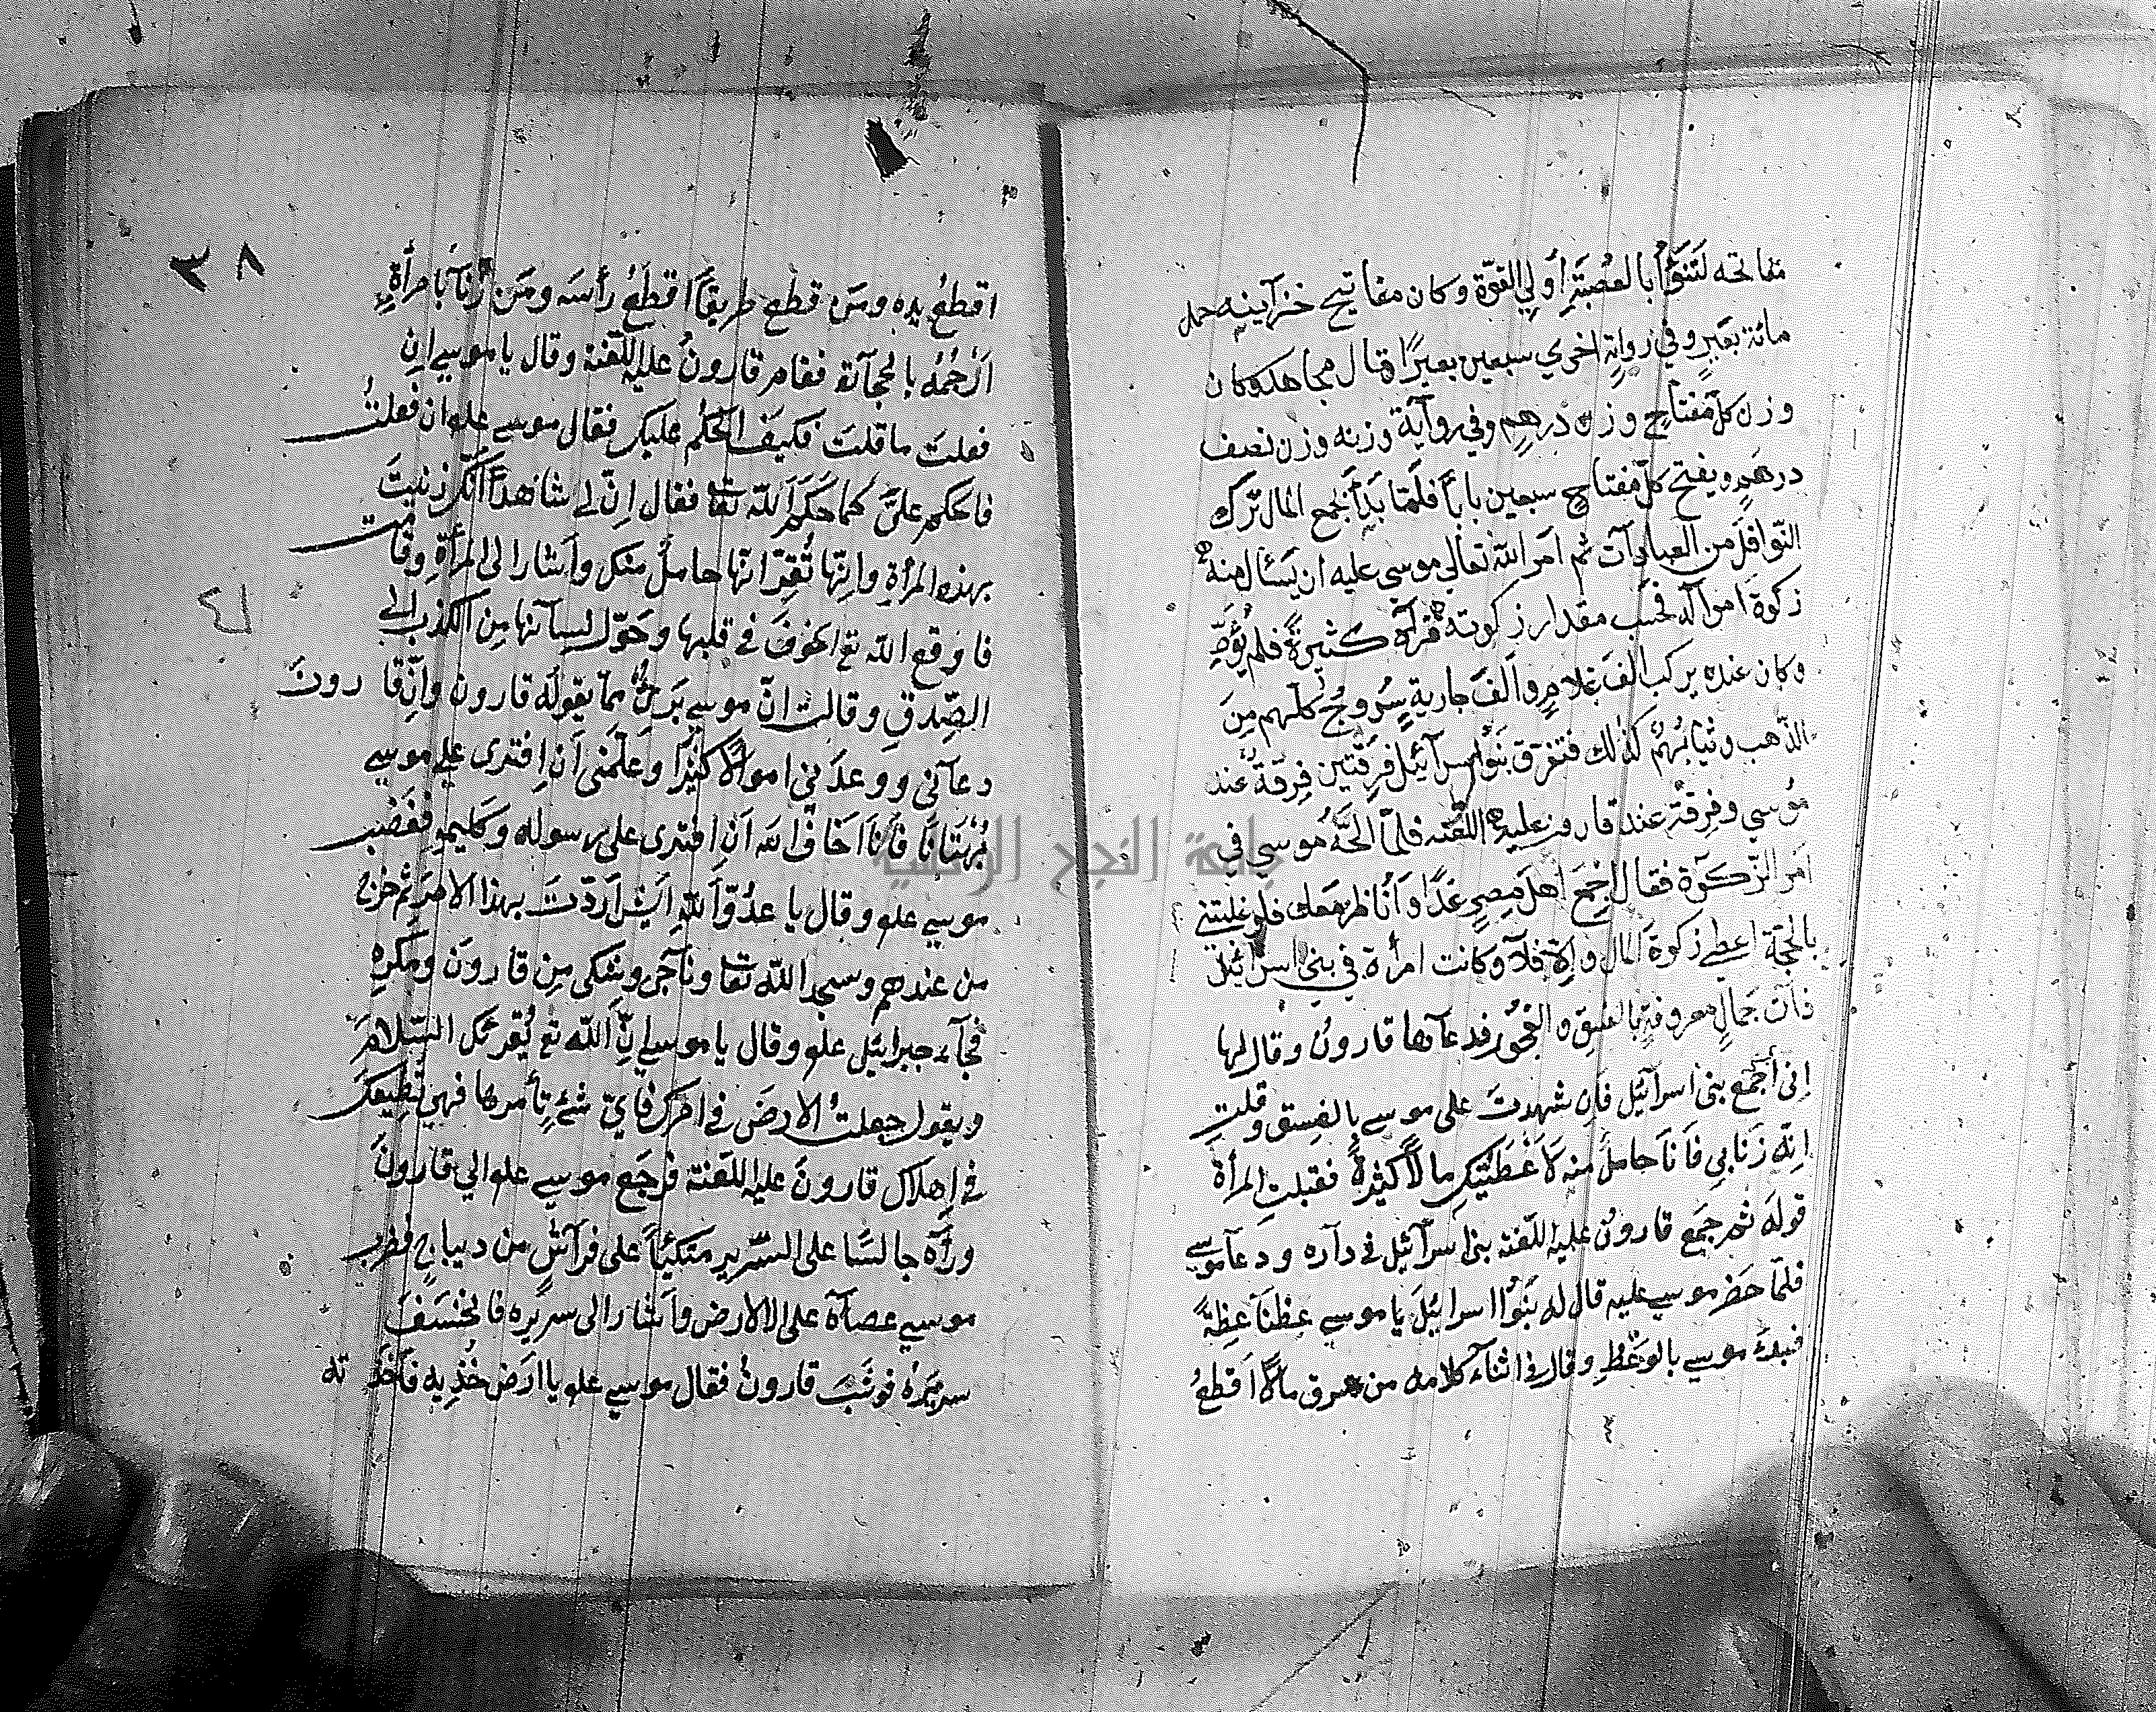 مفاتحه لَتَنَوُأ بالعُصْبَةِ أولِي القوّة وكان مفاتيح خزآينه حمل
مائة بَعيرٍ وفي روايةٍ اخري سبعين بعيرًا قال مجاهد وكان
وزن كلّ مفتاحٍ وزن درهمٍ وفي روآية وزنه وزن نصف
درهمٍ ويفتح كلّ مفتاحٍ سبعين بابأ فلمّا بَدَأ بجمع المال تَرَك
النّوافل من العبادآت ثم امر اللّه تعالي موسي عليه ان يسئال منه
زكوة اموآله فحسب مقدار زكوته فرآه كثيرةً فلم يؤدِّ
وكان عنده يركب الف غلامٍ والف جاريةٍ سُرُوجُ كلّهم من
الذّهب وثيابُهُمْ كذلك فتفرّق بَنَوُا اسرآئيل فِرقتين فِرقةٌ عند
مُوسي وفِرقةٌ عند قارون عليه اللّعْنه فلمّا الحّهُ موسي في
اَمرِ الزّكوٓة فقال اِجْمع اهلَ مِصرٍ غدًا وَاُناظر معك فلو غلبتني
بالحجّة اعطي زكوة المال وإلّا فلآ وكانت امرأة في بني اسرآئيل
ذات جَمالٍ معروفةٍ بالفِسقِ والفجُور فدعآها قارونُ وقال لها
اِنى أَجْمع بنى اسرآئيل فاِن شهدتَ على موسى بالفِسق وقلتِ
اِنّه زَنَا بِي فَاَنَا حاملٌ منه لَأعْطَيْتُكِ مالًا كثيرةً فقبلت المرأة
قولَهُ ثم جَمع قارونُ عليه اللّعْنة بنى اسرآئيل في دآره ودعآ موسي
فلمّا حَضر موسي عليه قال له بَنَوُا اسرائيلَ يا موسي عظنَا عِظةً
فبدءَ موسي بالوَعْظِ وقال في اثنآء كلامه من سرق مالًا اَقطعُ
٣٨
اقطعُ يده ومَنْ قطع طريقاً اقطعُ رأسَه ومَن زَنآ بامرأةٍ
اَرْجُمُهُ بالحجآرة فقام قارونُ عليه اللّعْنة وقال يا موسي اِن
فعلتَ ما قلتَ فكيفَ الحُكْم عليك فقال موسي علم وان فعلتُ
فاحكم علىَّ كما حَكَمَ اللّه تعا فقال اِنّ لي شاهداً اَنّك زنيتَ
بهذه المرأة واِنّها تُقِرّ انّها حاملٌ منك واَشار الى المرأةِ وقامت
فاوقع اللّه تع الخوفَ في قلبها وحَوّل لسآنها من الكذب الي
الصِّدقِ وقالت انّ موسي بَرِئٌ ممّا يقولُه قارون وانّ قارونَ
دعآني ووعدَني اموآلًا كثيرًا وعَلّمنى اَن اِفترى على موسي
بُهْتَانًا فَاَنَا اَخافُ اللّه اَن اِفترى على رسوله وكليمه فغضب
موسي علم وقال يا عدُوّ اللّه اَيش اَردْتَ بهذا الامر ثم خرج
من عندهم وسجد اللّه تعا ونآجى وشكى مِن قارونَ ومكرِه
فجآء جبرائيل علم وقال يا موسي اِنّ اللّه تع يُقرئك السّلامَ
ويقول جعلتُ الارضَ في امرك فاىّ شئٍ تأمرها فهى تُطيعك
في اِهلاك قارون عليه اللعنة فرجع موسي علم الي قارونَ
ورآه جالسًا على السّرير متكئِاً على فرآشٍ من ديباجٍ فضرب
موسي عصآه على الارض واَشار الى سريره فانخسَفَ
سريرُه فوثَبَ قارونُ فقال موسي علم يا ارضُ خُذِيه فاَخذته